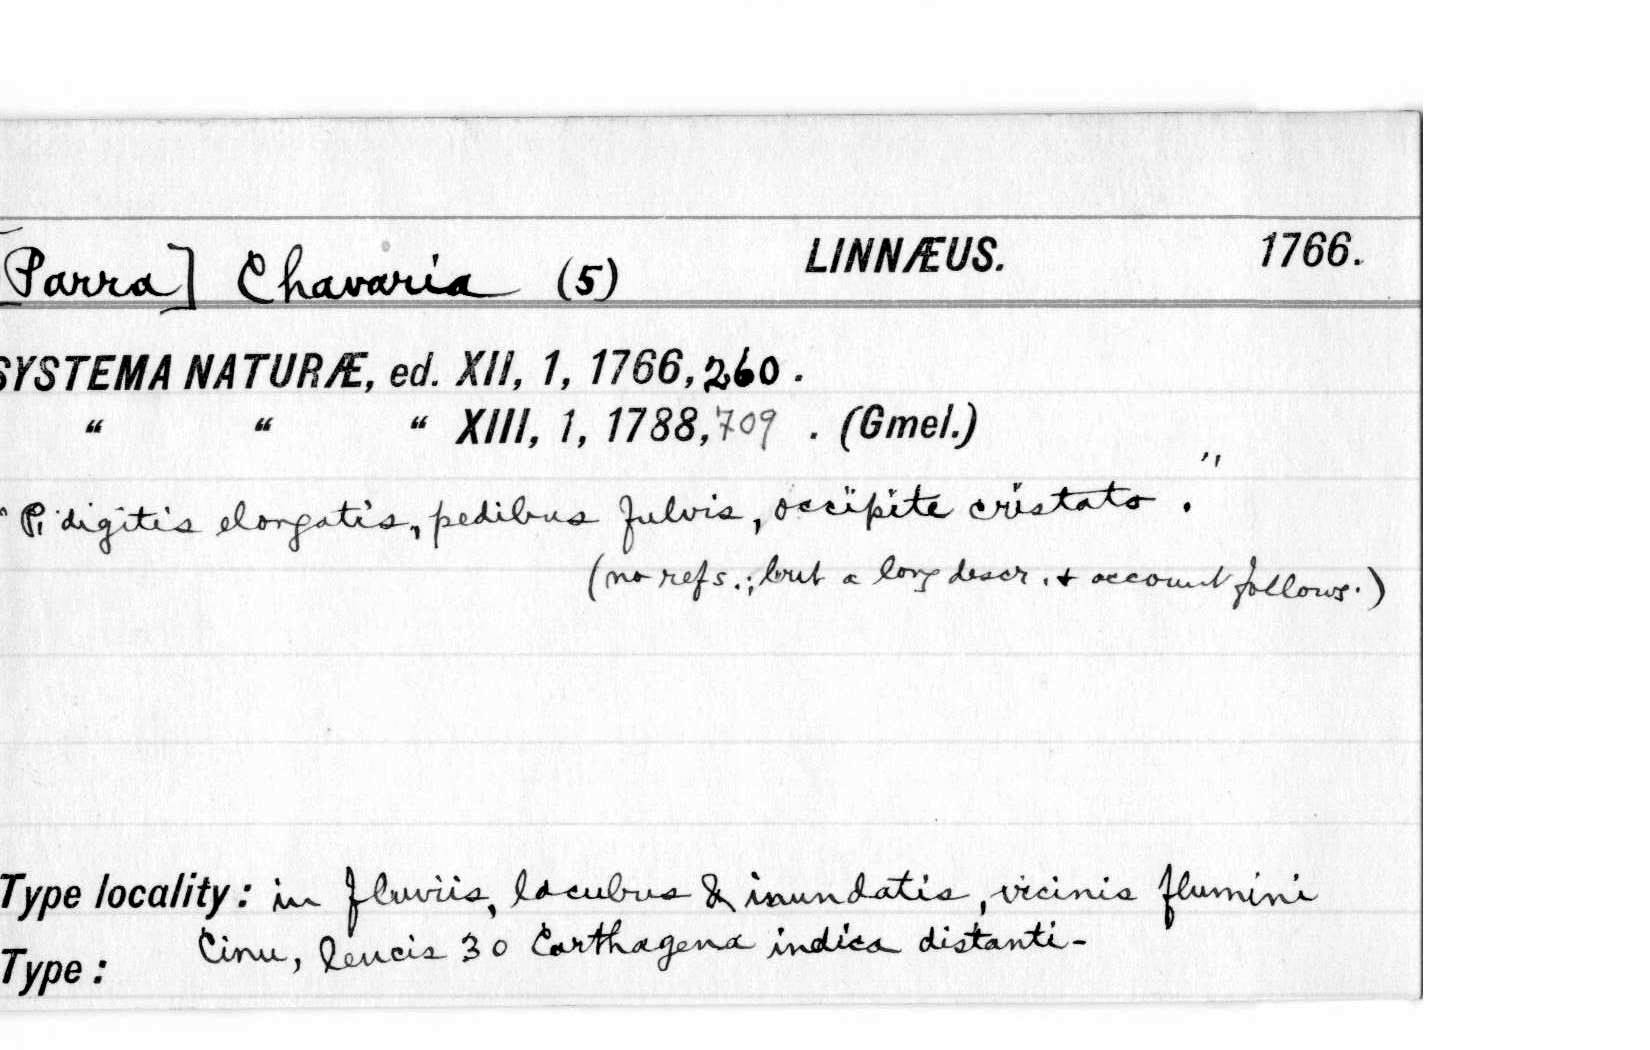 [Parra] Chavaria (5) LINNÆUS. 1766.
SYSTEMA NATURÆ, ed. XII, 1, 1766, 260.
“ “ “ XIII, 1, 1788, 709. (Gmel.)
"P. digitis elongatis, pedibus fulvis, occipite cristato."
(no refs.; but a long descr. & account follows.)
Type locality: in fluviis, lacubus & inundatis, vicinis flumini
Cinu, leucis 30 Carthagena indica distanti-
Type: